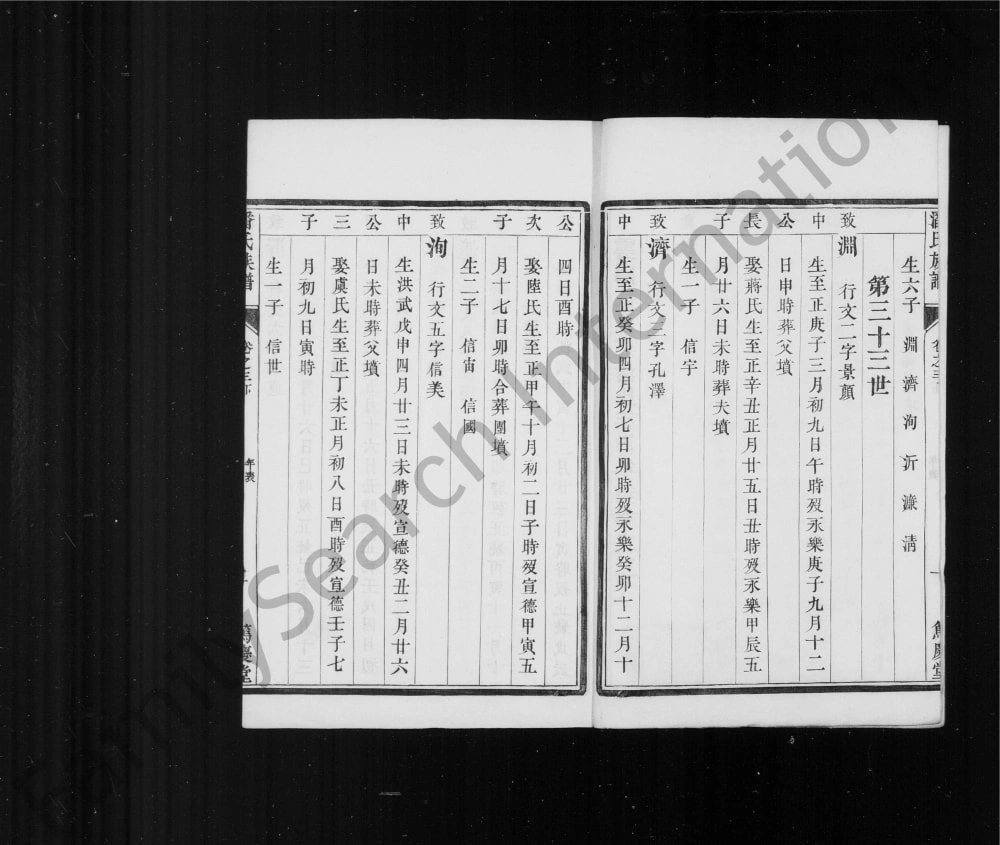 潘氏族譜 卷之三 年表 篤慶堂
生六子 淵 濟 洵 沂 濂 淸
第三十三世
致 淵 行文二字景顏
中 生至正庚子三月初九日午時歿永樂庚子九月十二
公 日申時葬父墳
長 娶蔣氏生至正辛丑正月廿五日丑時歿永樂甲辰五
子 月廿六日未時葬夫墳
生一子 信宇
致 濟 行文三字孔澤
中 生至正癸卯四月初七日卯時歿永樂癸卯十二月十
公 四日酉時
次 娶陸氏生至正甲午十月初二日子時歿宣德甲寅五
子 月十七日卯時合葬圍墳
生二子 信宙 信國
致 洵 行文五字信美
中 生洪武戊申四月廿三日未時歿宣德癸丑二月廿六
公 日未時葬父墳
三 娶虞氏生至正丁未正月初八日酉時歿宣德壬子七
子 月初九日寅時
生一子 信世
潘氏族譜 卷之三 年表 篤慶堂
FamilySearch International